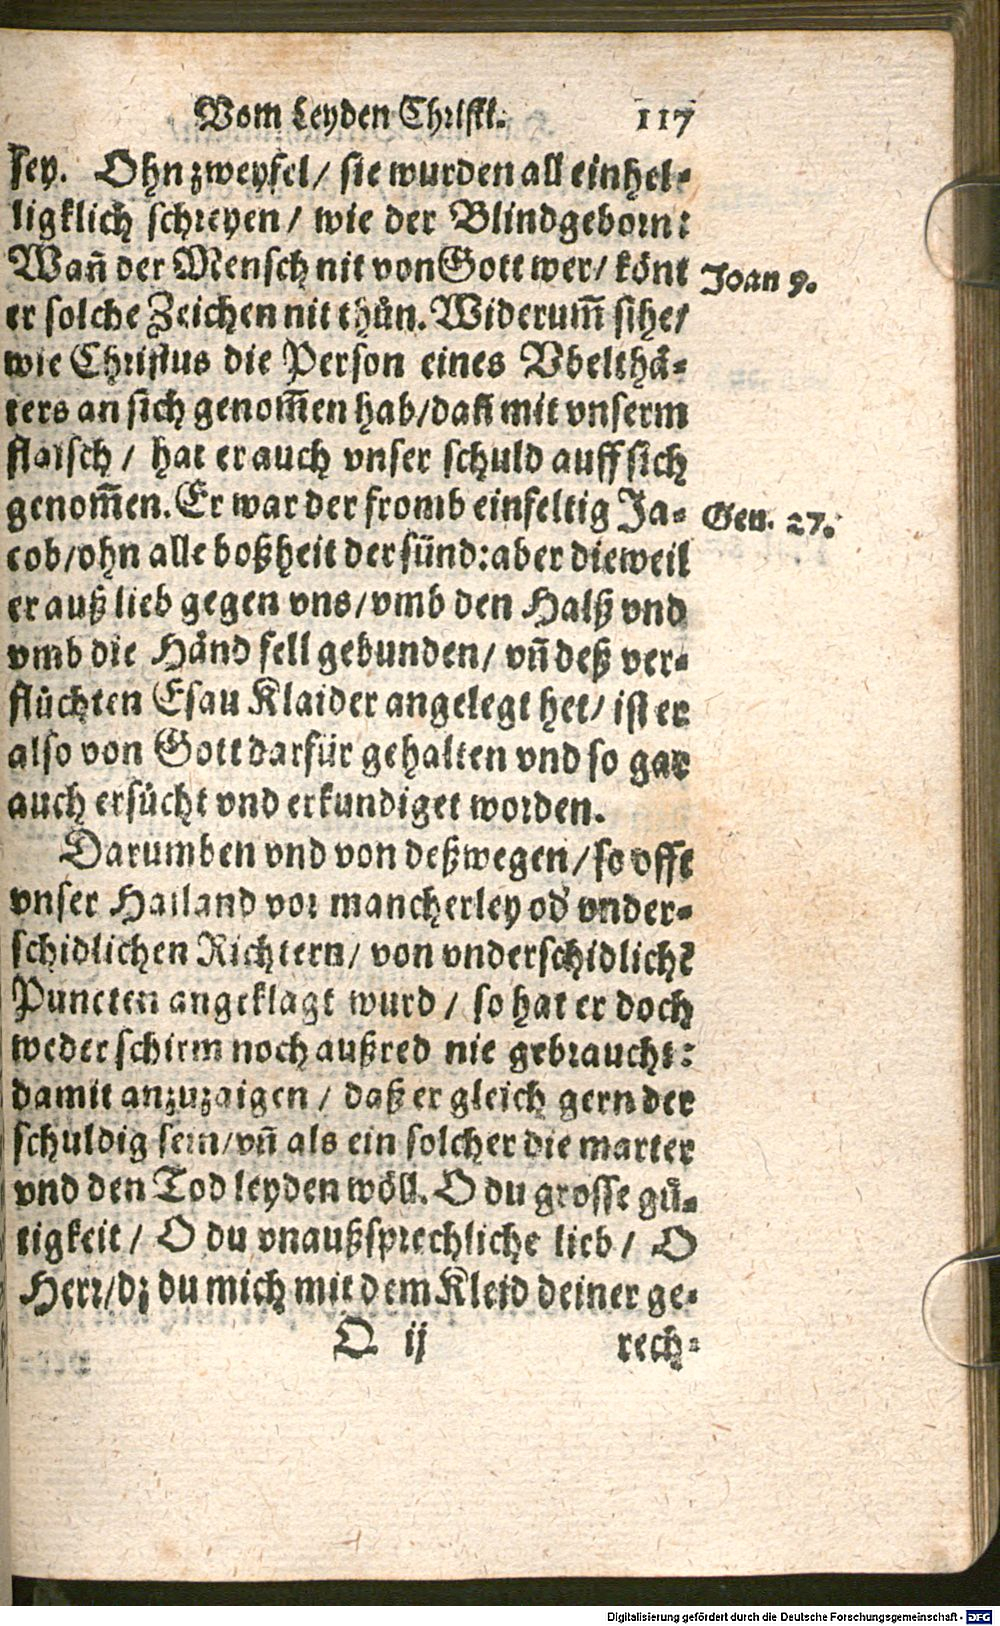 Vom Leyden Christi. 117
sey. Ohn zweyfel/ sie wurden all einhel-
ligklich schreyen/ wie der Blindgeborn:
Wañ der Mensch nit von Gott wer/ könt Joan 9.
er solche Zeichen nit thůn. Widerum̃ sihe/
wie Christus die Person eines Vbelthå-
ters an sich genom̃en hab/ dañ mit vnserm
flaisch/ hat er auch vnser schuld auff sich
genom̃en. Er war der fromb einfeltig Ja- Gen. 27.
cob/ ohn alle boßheit der sünd: aber dieweil
er auß lieb gegen vns/ vmb den Halß vnd
vmb die Händ fell gebunden/ vñ deß ver-
flůchten Esau Klaider angelegt het/ ist er
also von Gott darfür gehalten vnd so gar
auch ersůcht vnd erkundiget worden.
Darumben vnd von deßwegen/ so offt
vnser Hailand vor mancherley od' vnder-
schidlichen Richtern/ von vnderschidlichẽ
Puncten angeklagt wurd/ so hat er doch
weder schirm noch außred nie gebraucht:
damit anzuzaigen/ daß er gleich gern der
schuldig sein/ vñ als ein solcher die marter
vnd den Tod leyden wöll. O du grosse gü-
tigkeit/ O du vnaußsprechliche lieb/ O
Herr/ dz du mich mit dem Kleid deiner ge-
O ij rech-
Digitalisierung gefördert durch die Deutsche Forschungsgemeinschaft - DFG